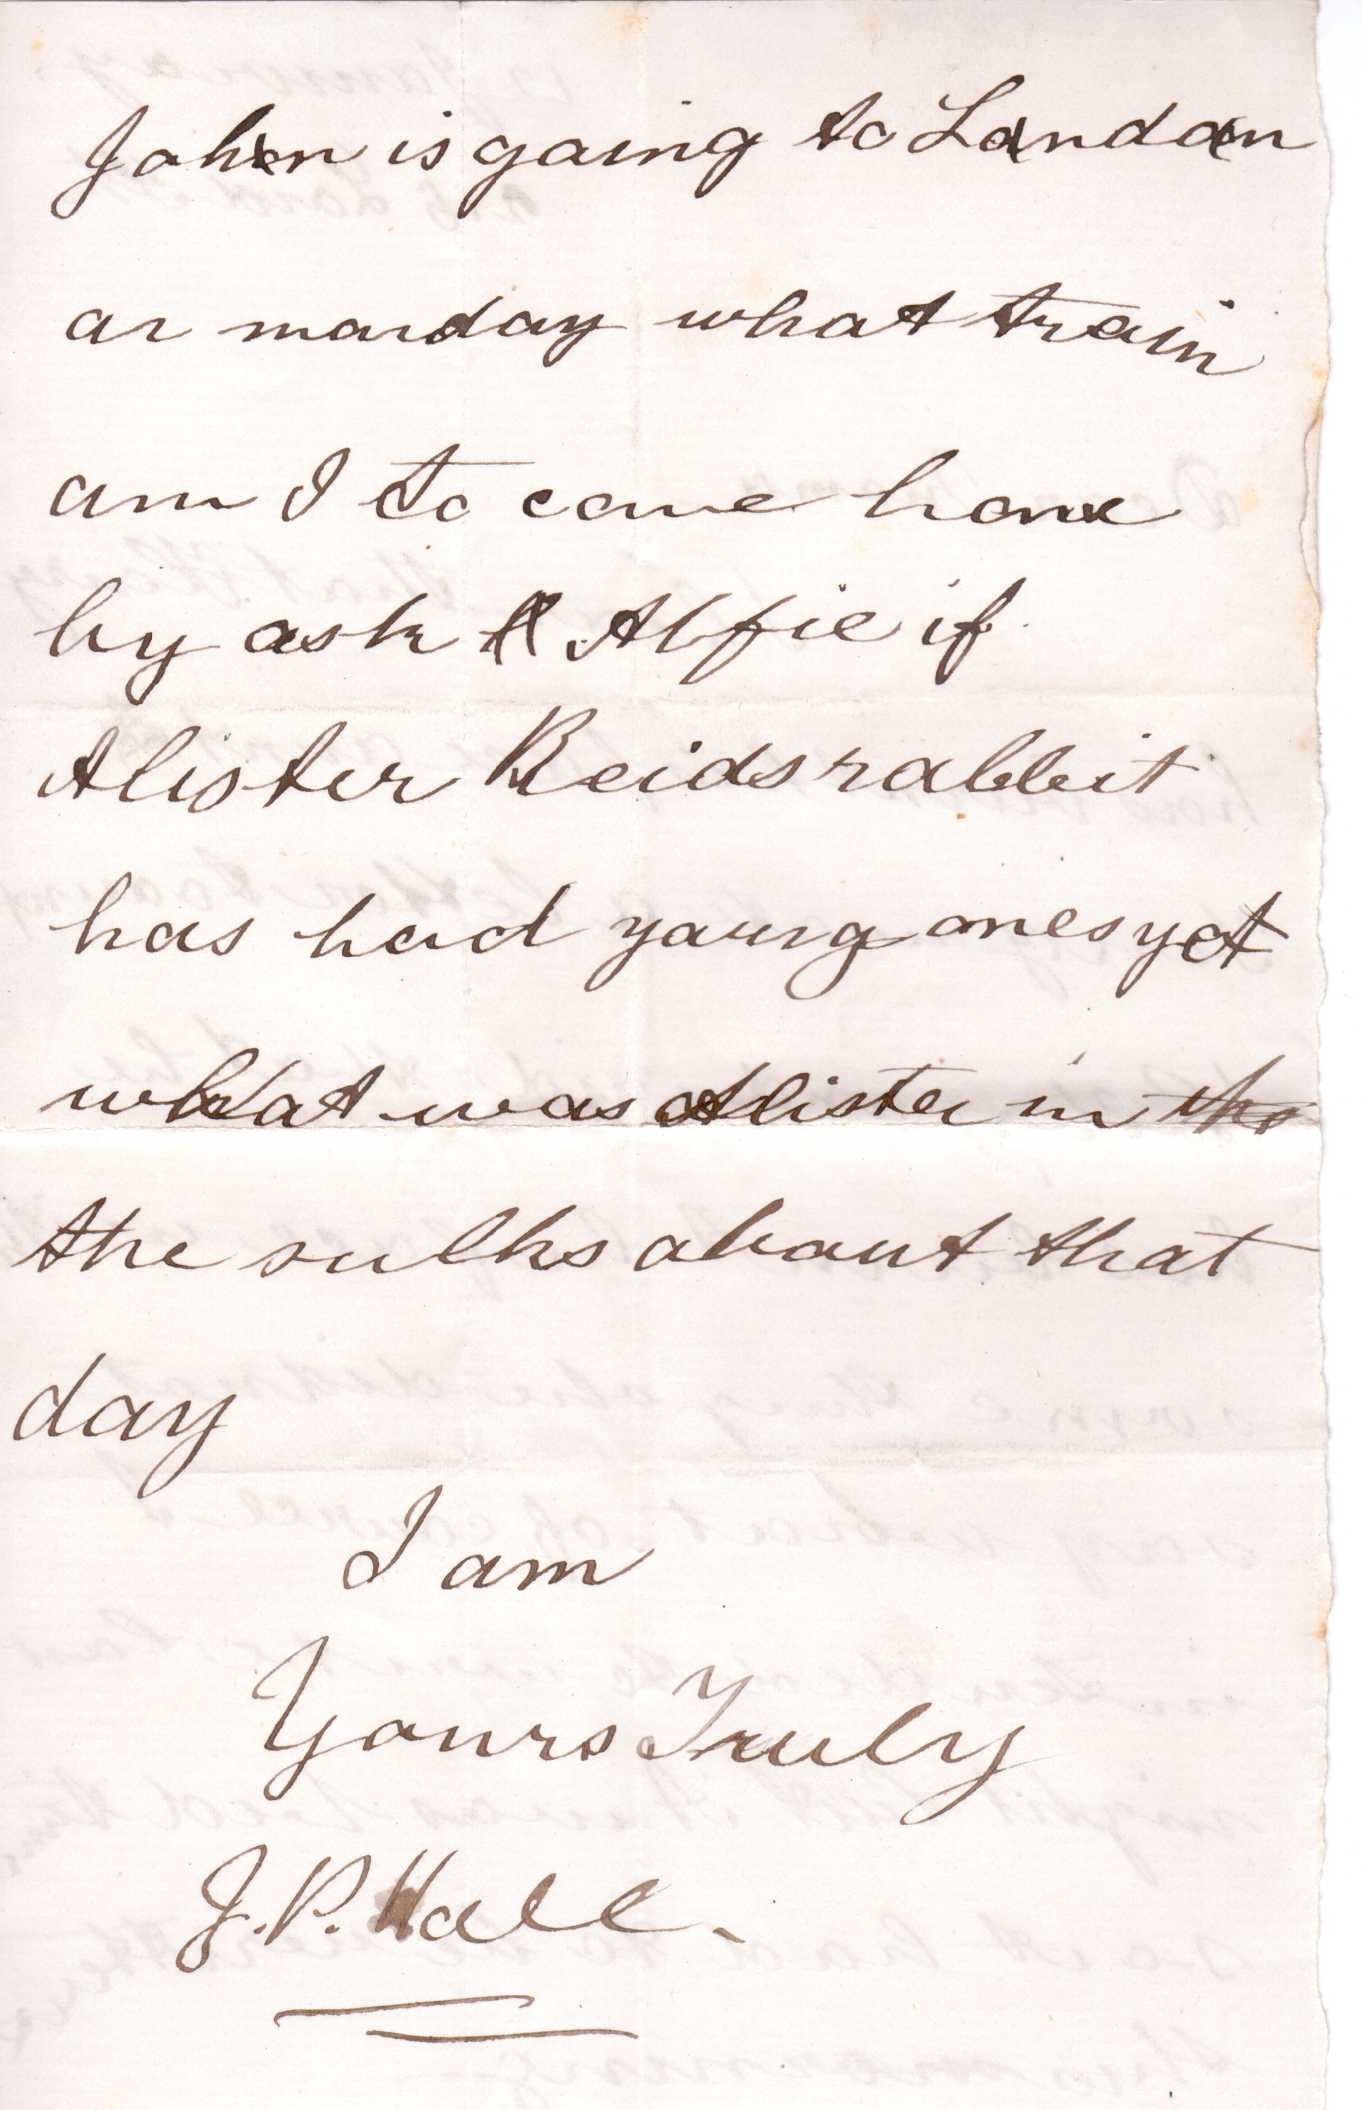 John is going to London
on monday what train
am I to come home
by ask Alfie if
Alister Reids rabbit
has had young ones yet
what was Alister in the
the sulks about that
day
I am
Yours Truly
J.P. Hall.